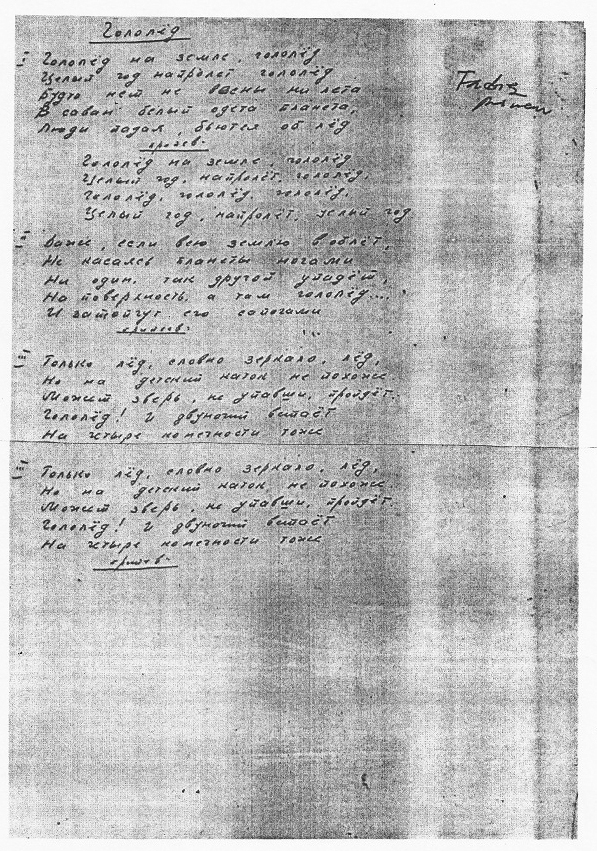 Гололёд
I Гололёд на земле, гололёд
Целый год напролёт гололёд
Будто нет не весны ни лета
В саван белый одета планета,
Люди падая, бьются об лёд
припев:
Гололёд на земле, гололёд
Целый год, напролёт, гололёд,
Гололёд, гололёд, гололёд,
Целый год, напролёт, целый год
II Даже, если всю землю в облёт,
Не касаясь планеты ногами
Ни один, так другой упадёт,
На поверхность, а там гололёд...
И затопчут его сапогами
припев:
III Только лёд, словно зеркало, лёд,
Но на детский каток не похоже.
Может зверь, не упавши, пройдёт..
Гололёд! И двуногий
На четыре конечности тоже
III Только лёд, словно зеркало, лёд,
Но на детский каток не похоже.
Может зверь, не упавши, пройдёт.
Гололёд! И двуногий
На четыре конечности тоже
припев: